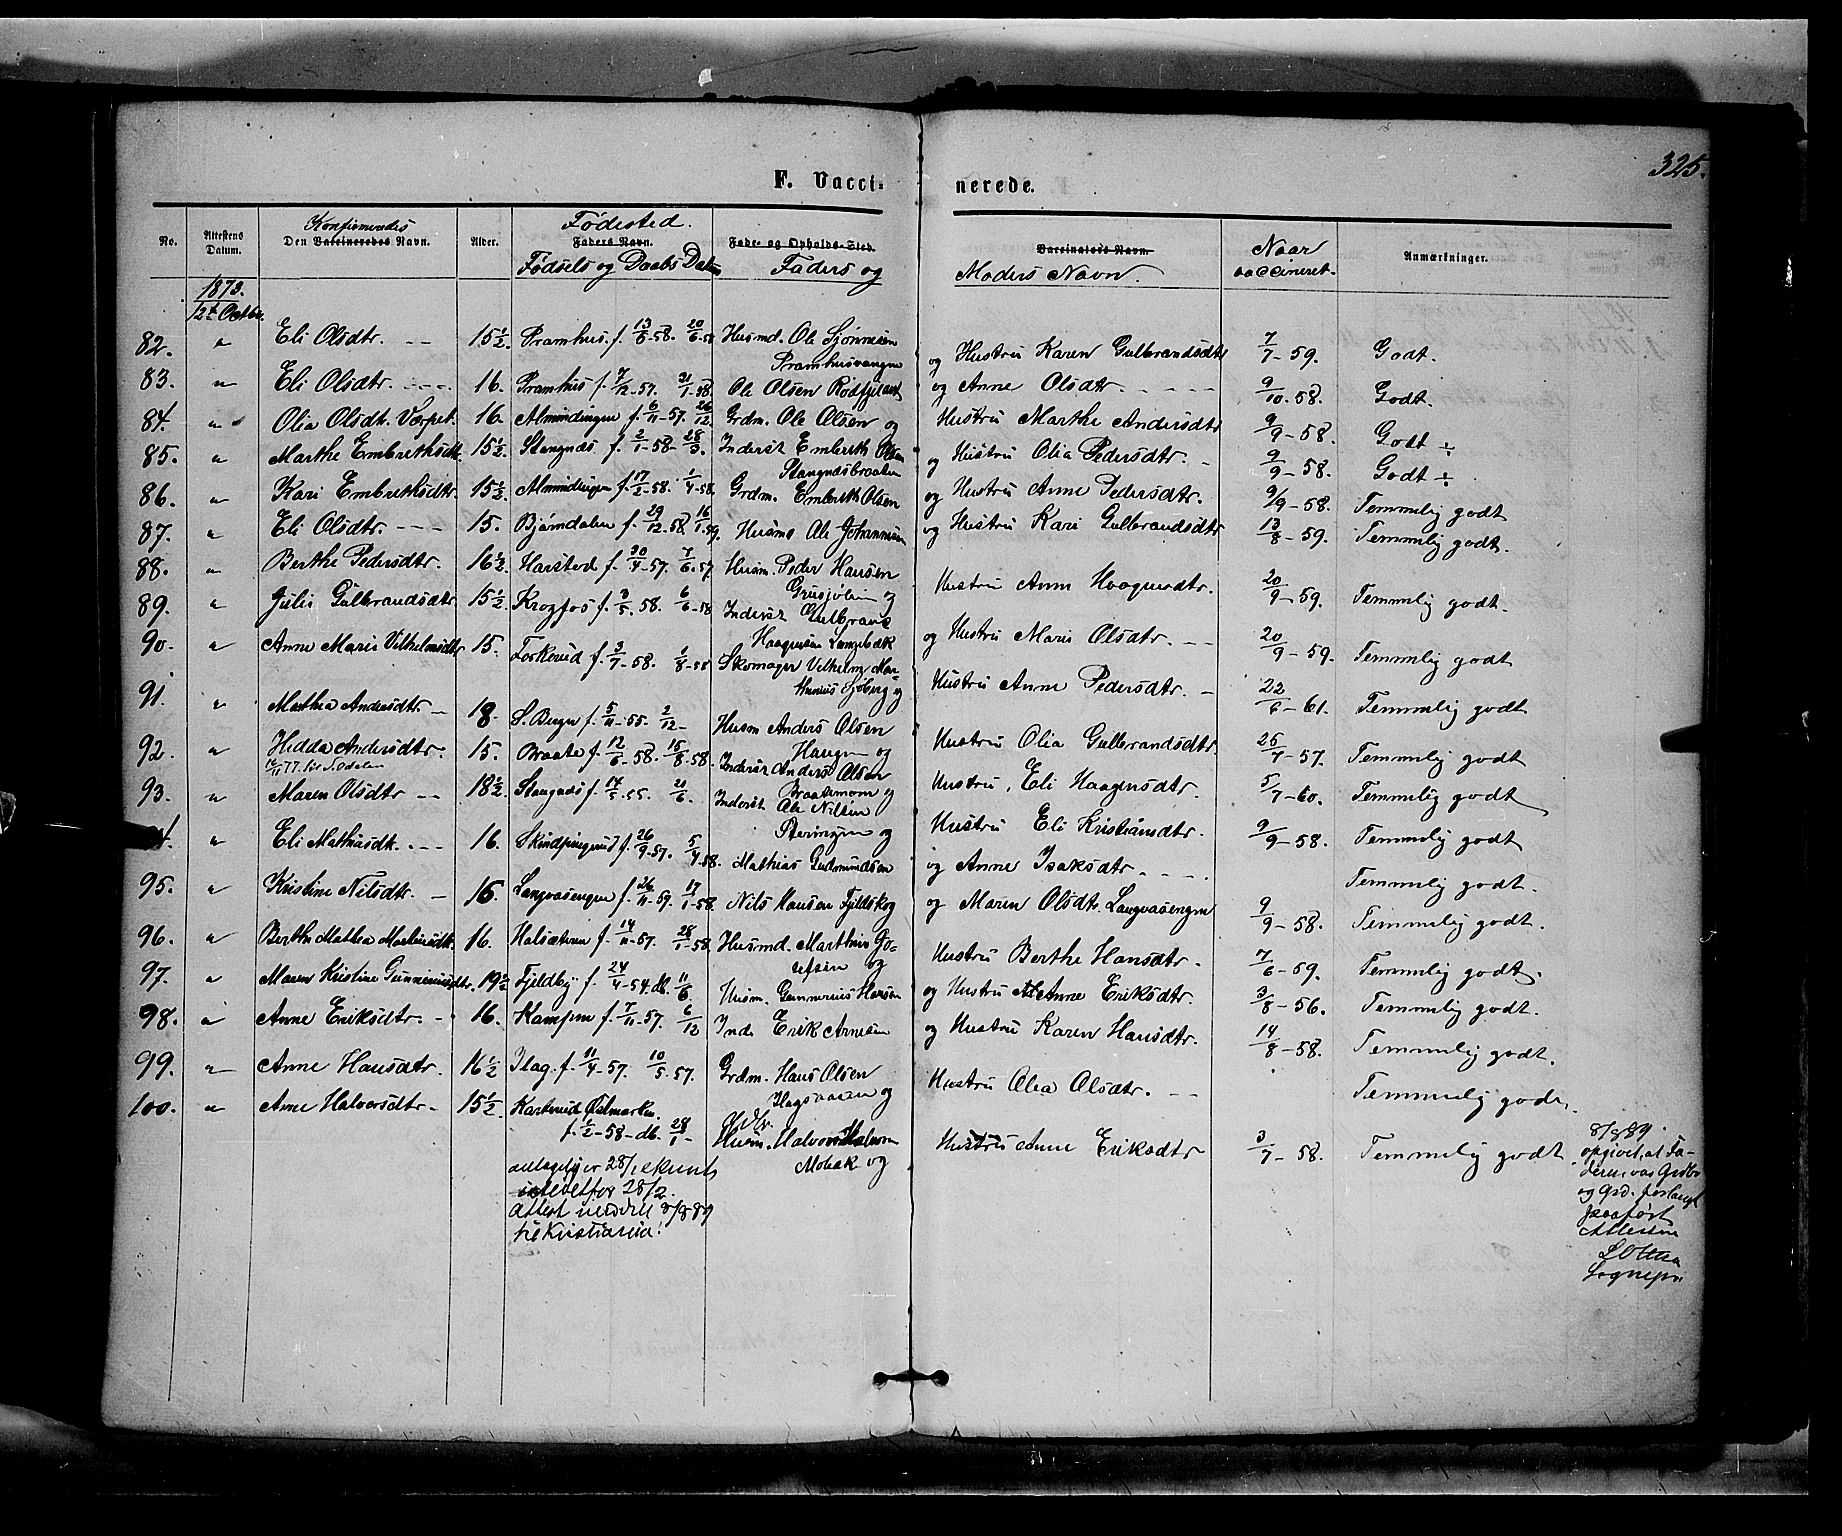 325.
F. Vacci- nerede.
No. Attestens Datum. Konfirmendes Den Vaccineredes Navn. Alder. Fødested. Faders Navn. Fødsels og Daabs Datum Føde- og Opholds-Sted. Faders og Vaccinators Navn. Moders Navn. Naar vaccineret. Anmærkninger.
1873.
12te Octbr.
82. " Eli Olsdtr. 15½. Pramhus. f. 13/5-58. 20/6-58 Husmd. Ole og Hustru Karen Gulbrandsdtr 7/7-59. Godt.
Pramhusvangen
83. " Eli Olsdtr. 16. Pramhus f. 7/12-57. 31/1-58. Ole Olsen og Anne Olsdtr. 9/10-58. Godt.
84. " Olia Olsdt. Værpet. 16. Almindingen f. 6/11-57. 26/12 Grdm. Ole Olsen og Hustru Marthe Andersdtr 9/9-58. Godt ÷
85. " Marthe Embrethsdtr. 15½. Stangnæs f. 2/1-58- 28/3. Inderst Embreth Olsen og Hustru Olia Pedersdtr. 9/9-58. Godt ÷
Stangnæsbraaten
86. " Kari Embrethsdtr. 15½. Almindingen f. 17/2-58. 1/4-58. Grdm. Embreth Olsen og Hustru Anne Pedersdtr. 9/9-58. Temmelig godt
87. " Eli Olsdtr. 15. Bjørndalen f. 29/12-58 16/1-59. Husmd Ole Johannesen og Hustru Kari Gulbrandsdtr 13/8-59. Temmelig godt.
88. " Berthe Pedersdtr. 16½. Harstad f. 30/4-57. 7/6-57 Husm. Peder Hansen
og Hustru Anne Haagensdtr. 20/9-59. Temmelig godt.
89. " Julie Gulbrandsdtr. 15½. Krogfos f. 3/5-58. 6/6-58 Inderst Gulbrand
Haagensen Langebæk og Hustru Marie Olsdtr. 20/9-59. Temmelig godt
90. " Anne Marie Vilhelmsdtr 15. Foskerud f. 3/7-58. 1/8-58 Skomager Vilhelm Mar-
thinius Sjøberg og Hustru Anne Pedersdtr. 22/6-61. Temmelig godt
91. " Mathea Andersdtr. 18. S. Berger f. 5/11-55. 2/12- Husm Anders Olsen
Haugen og Hustru Olia Gulbrandsdtr. 25/7-57. Temmelig godt
92. " Hedda Andersdtr. 15. Braate f. 12/6-58. 15/8-58. Inderst Anders Olsen
Braatemoen og Hustru Eli Haagensdtr. 5/7-60. Temmelig godt
93. " Maren Olsdtr 18½. Stangnæs f. 14/5-55. 20/6. Inderst Ole Nilsen
og Hustru Eli Kristiansdtr. 9/9-58. Temmelig godt
94. " Eli Mathiasdtr. 16. f. 26/9-57. 5/4-58. Mathias Gudmundsen og Anne Isaksdtr Temmelig godt.
95. " Kristine Nilsdtr. 16. Langvasengen f. 26/11-59. 17/1-58. Nils Hansen Fjeldskog og Maren Olsdtr. Langvasengen 9/9-58. Temmelig godt.
96. " Berthe Mathea Martinsdtr. 16. Halsæteren f. 14/11-57. 28/1-58. Husmd. Marthin Jo-
sefsen og Hustru Berthe Hansdtr. 7/6-59. Temmelig godt.
97. " Maren Kristine Gunneriusdtr. 19½ Fjeldby f. 24/4-54. db. 11/6 Husm. Gunnerius Hansen og Hustru Anne Eriksdtr. 3/8-56. Temmelig godt.
98. " Anne Eriksdtr. 16. Kampen f. 7/11-57. 6/12 Ind. Erik Arnesen og Hustru Karen Hansdtr. 14/8-58. Temmelig godt.
99. " Anne Hansdtr. 16½ Ilag. f. 11/4-57. 10/5-57. Grdm. Hans Olsen
og Hustru Olea Olsdtr. Temmelig godt.
100. " Anne Halvorsdtr. 15½ Karterud Østmarken
f. 1/2-58- db. 28/1- Husm. Halvor Halvorsen
Mobak og Hustru Anne Eriksdtr 3/7-58. Temmelig godt
antagelig er 28/1 skrevet
istedetfor 28/2.
Attest meddelt 8/8 89
til Kristiania!
8/8 89.
opgivet, at Fa-
deren var
og forlangt
paaført
Attesten
Sognepr.